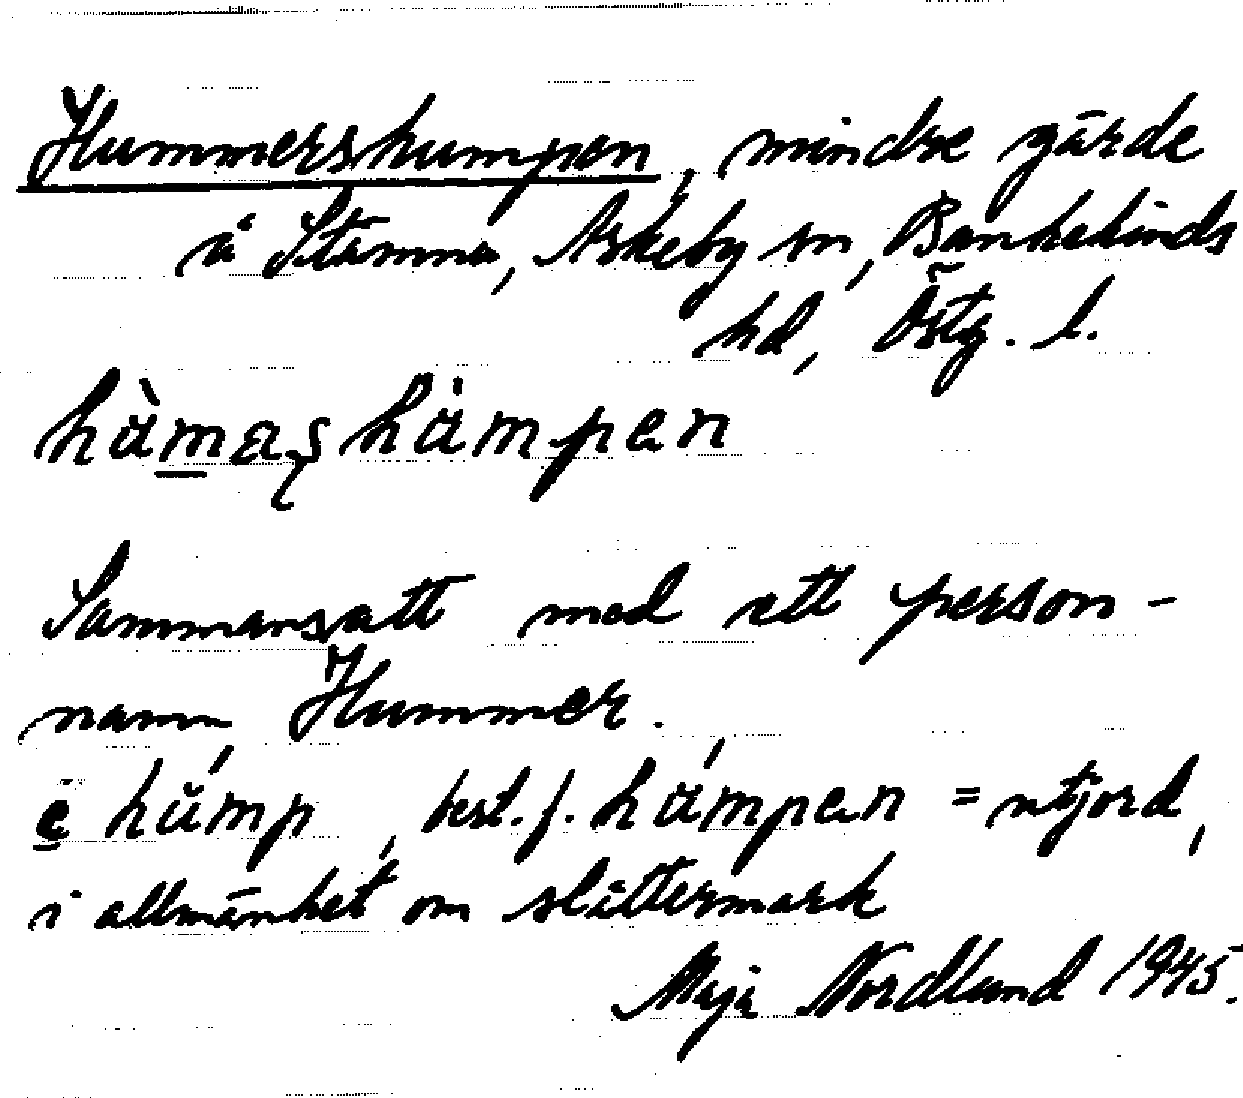 Hummershumpen, mindre gärde
å Stämma, Askeby sn, Bankekinds
hd, Östg. l.
Sammansatt med ett person-
namn Hummer.
best. f. = utjord,
i allmänhet om slåttermark
Maja Nordlund 1945.